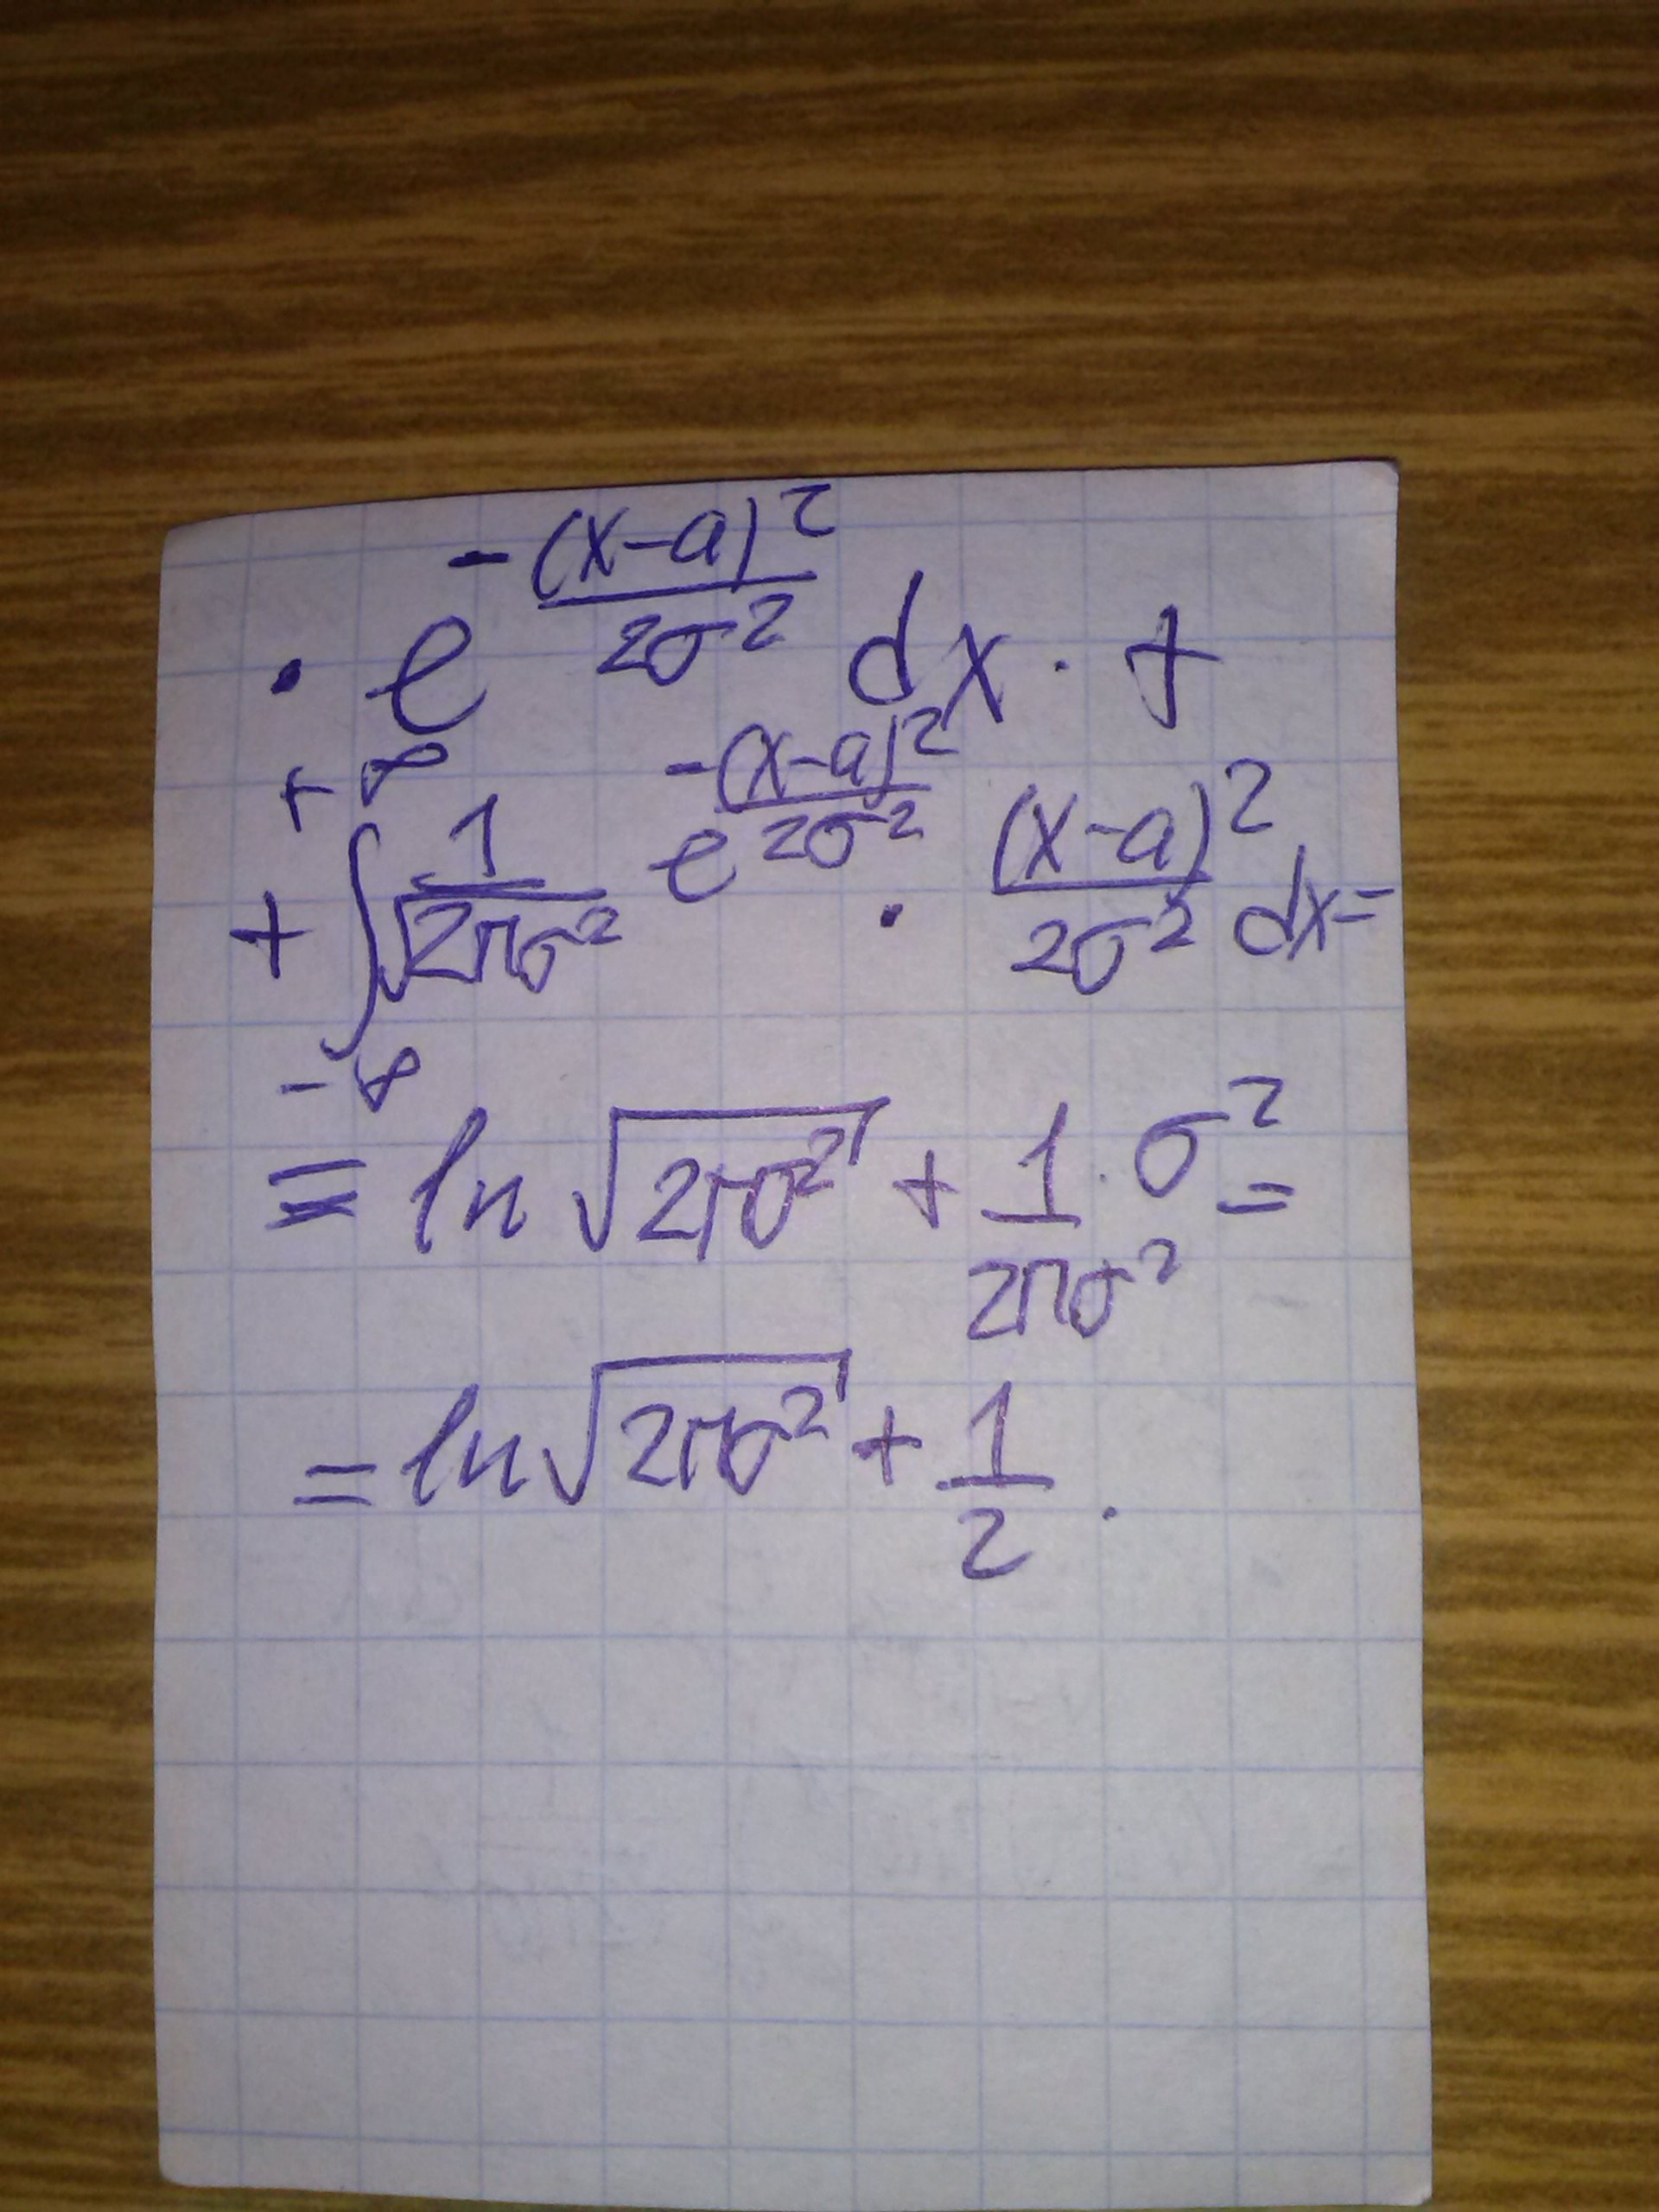 · e^{-\frac{(x-a)^2}{2σ^2}} dx · +
+ \int_{-∞}^{+∞} \frac{1}{\sqrt{2πσ^2}} e^{-\frac{(x-a)^2}{2σ^2}} · \frac{(x-a)^2}{2σ^2} dx =
= ln \sqrt{2πσ^2} + \frac{1}{2πσ^2} · σ^2 =
= ln \sqrt{2πσ^2} + \frac{1}{2} .